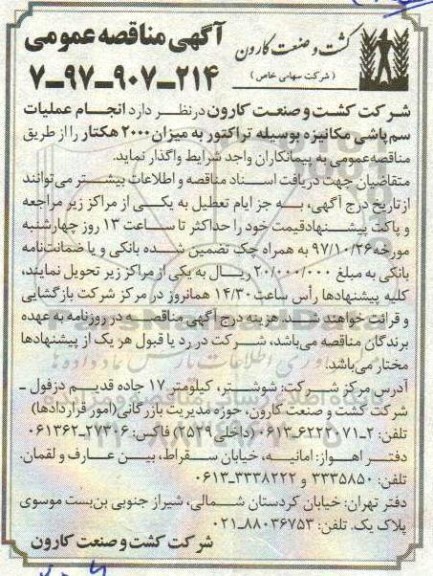 آگهی مناقصه عمومی
۷ـ۹۷ـ۹۰۷ـ۲۱۴
کشت و صنعت کارون
(شرکت سهامی خاص)
شرکت کشت و صنعت کارون در نظر دارد انجام عملیات
سم پاشی مکانیزه بوسیله تراکتور به میزان ۲۰۰۰ هکتار را از طریق
مناقصه عمومی به پیمانکاران واجد شرایط واگذار نماید.
متقاضیان جهت دریافت اسناد مناقصه و اطلاعات بیشتر می توانند
از تاریخ درج آگهی، به جز ایام تعطیل به یکی از مراکز زیر مراجعه
و پاکت پیشنهاد قیمت خود را حداکثر تا ساعت ۱۳ روز چهارشنبه
مورخه ۹۷/۱۰/۲۶ به همراه چک تضمین شده بانکی و یا ضمانت نامه
بانکی به مبلغ ۲۰/۰۰۰/۰۰۰ ریال به یکی از مراکز زیر تحویل نمایند،
کلیه پیشنهادها رأس ساعت ۱۴/۳۰ همانروز در مرکز شرکت بازگشایی
و قرائت خواهند شد. هزینه درج آگهی مناقصه در روزنامه به عهده
برندگان مناقصه می باشد، شرکت در رد یا قبول هر یک از پیشنهادها
مختار می باشد.
آدرس مرکز شرکت: شوشتر، کیلومتر ۱۷ جاده قدیم دزفول ـ
شرکت کشت و صنعت کارون، حوزه مدیریت بازرگانی (امور قراردادها)
تلفن: ۲ـ۰۶۱۳ـ۶۲۲۲۰۷۱ (داخلی ۲۵۲۹) فاکس: ۲۷۳۰۶ـ۰۶۱۳۶۲
دفتر اهواز: امانیه، خیابان سقراط، بین عارف و لقمان.
تلفن: ۳۳۳۵۸۵۰ و ۳۳۳۸۲۲۲ـ۰۶۱۳
دفتر تهران: خیابان کردستان شمالی، شیراز جنوبی بن بست موسوی
پلاک یک. تلفن: ۸۸۰۳۶۷۵۳ـ۰۲۱
شرکت کشت و صنعت کارون